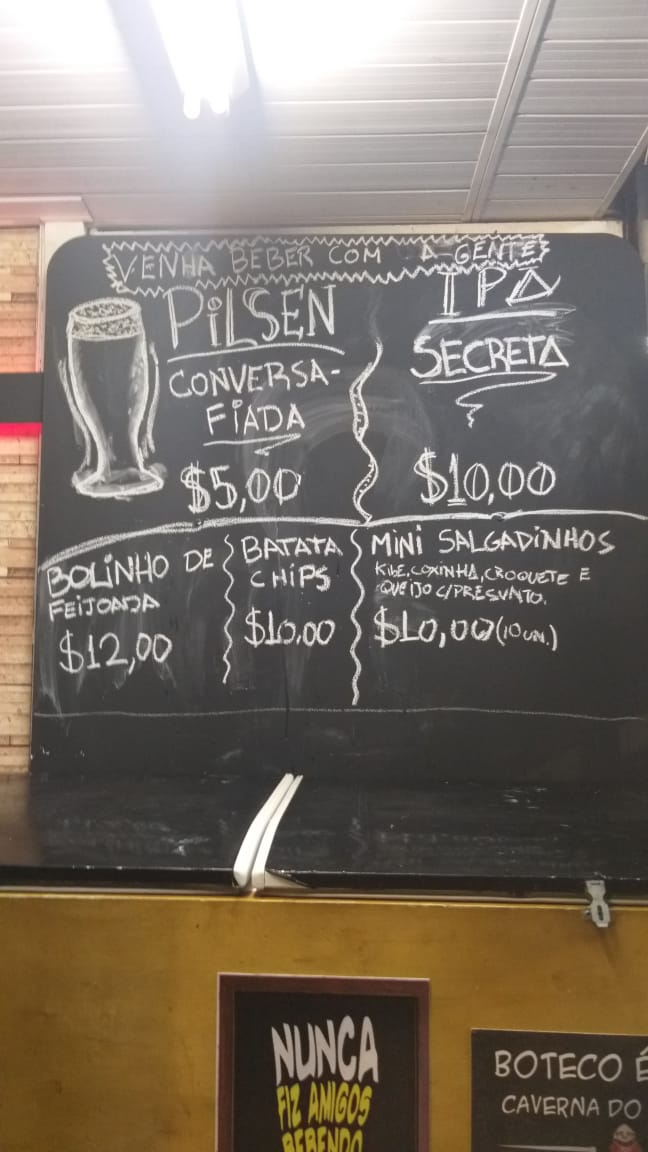 VENHA BEBER COM A GENTE
PiLSEN
CONVERSA-
FiADA
$5,00
IPA
SECRETA
$10,00
BOLiNHO DE
FEiJOADA
$12,00
BATATA
CHiPS
$10,00
MiNi SALGADiNHOS
KIBE, COXINHA, CROQUETE E
QUEIJO C/PRESUNTO.
$10,00 (10 UN.)
NUNCA
FIZ AMIGOS
BEBENDO
BOTECO É
CAVERNA DO